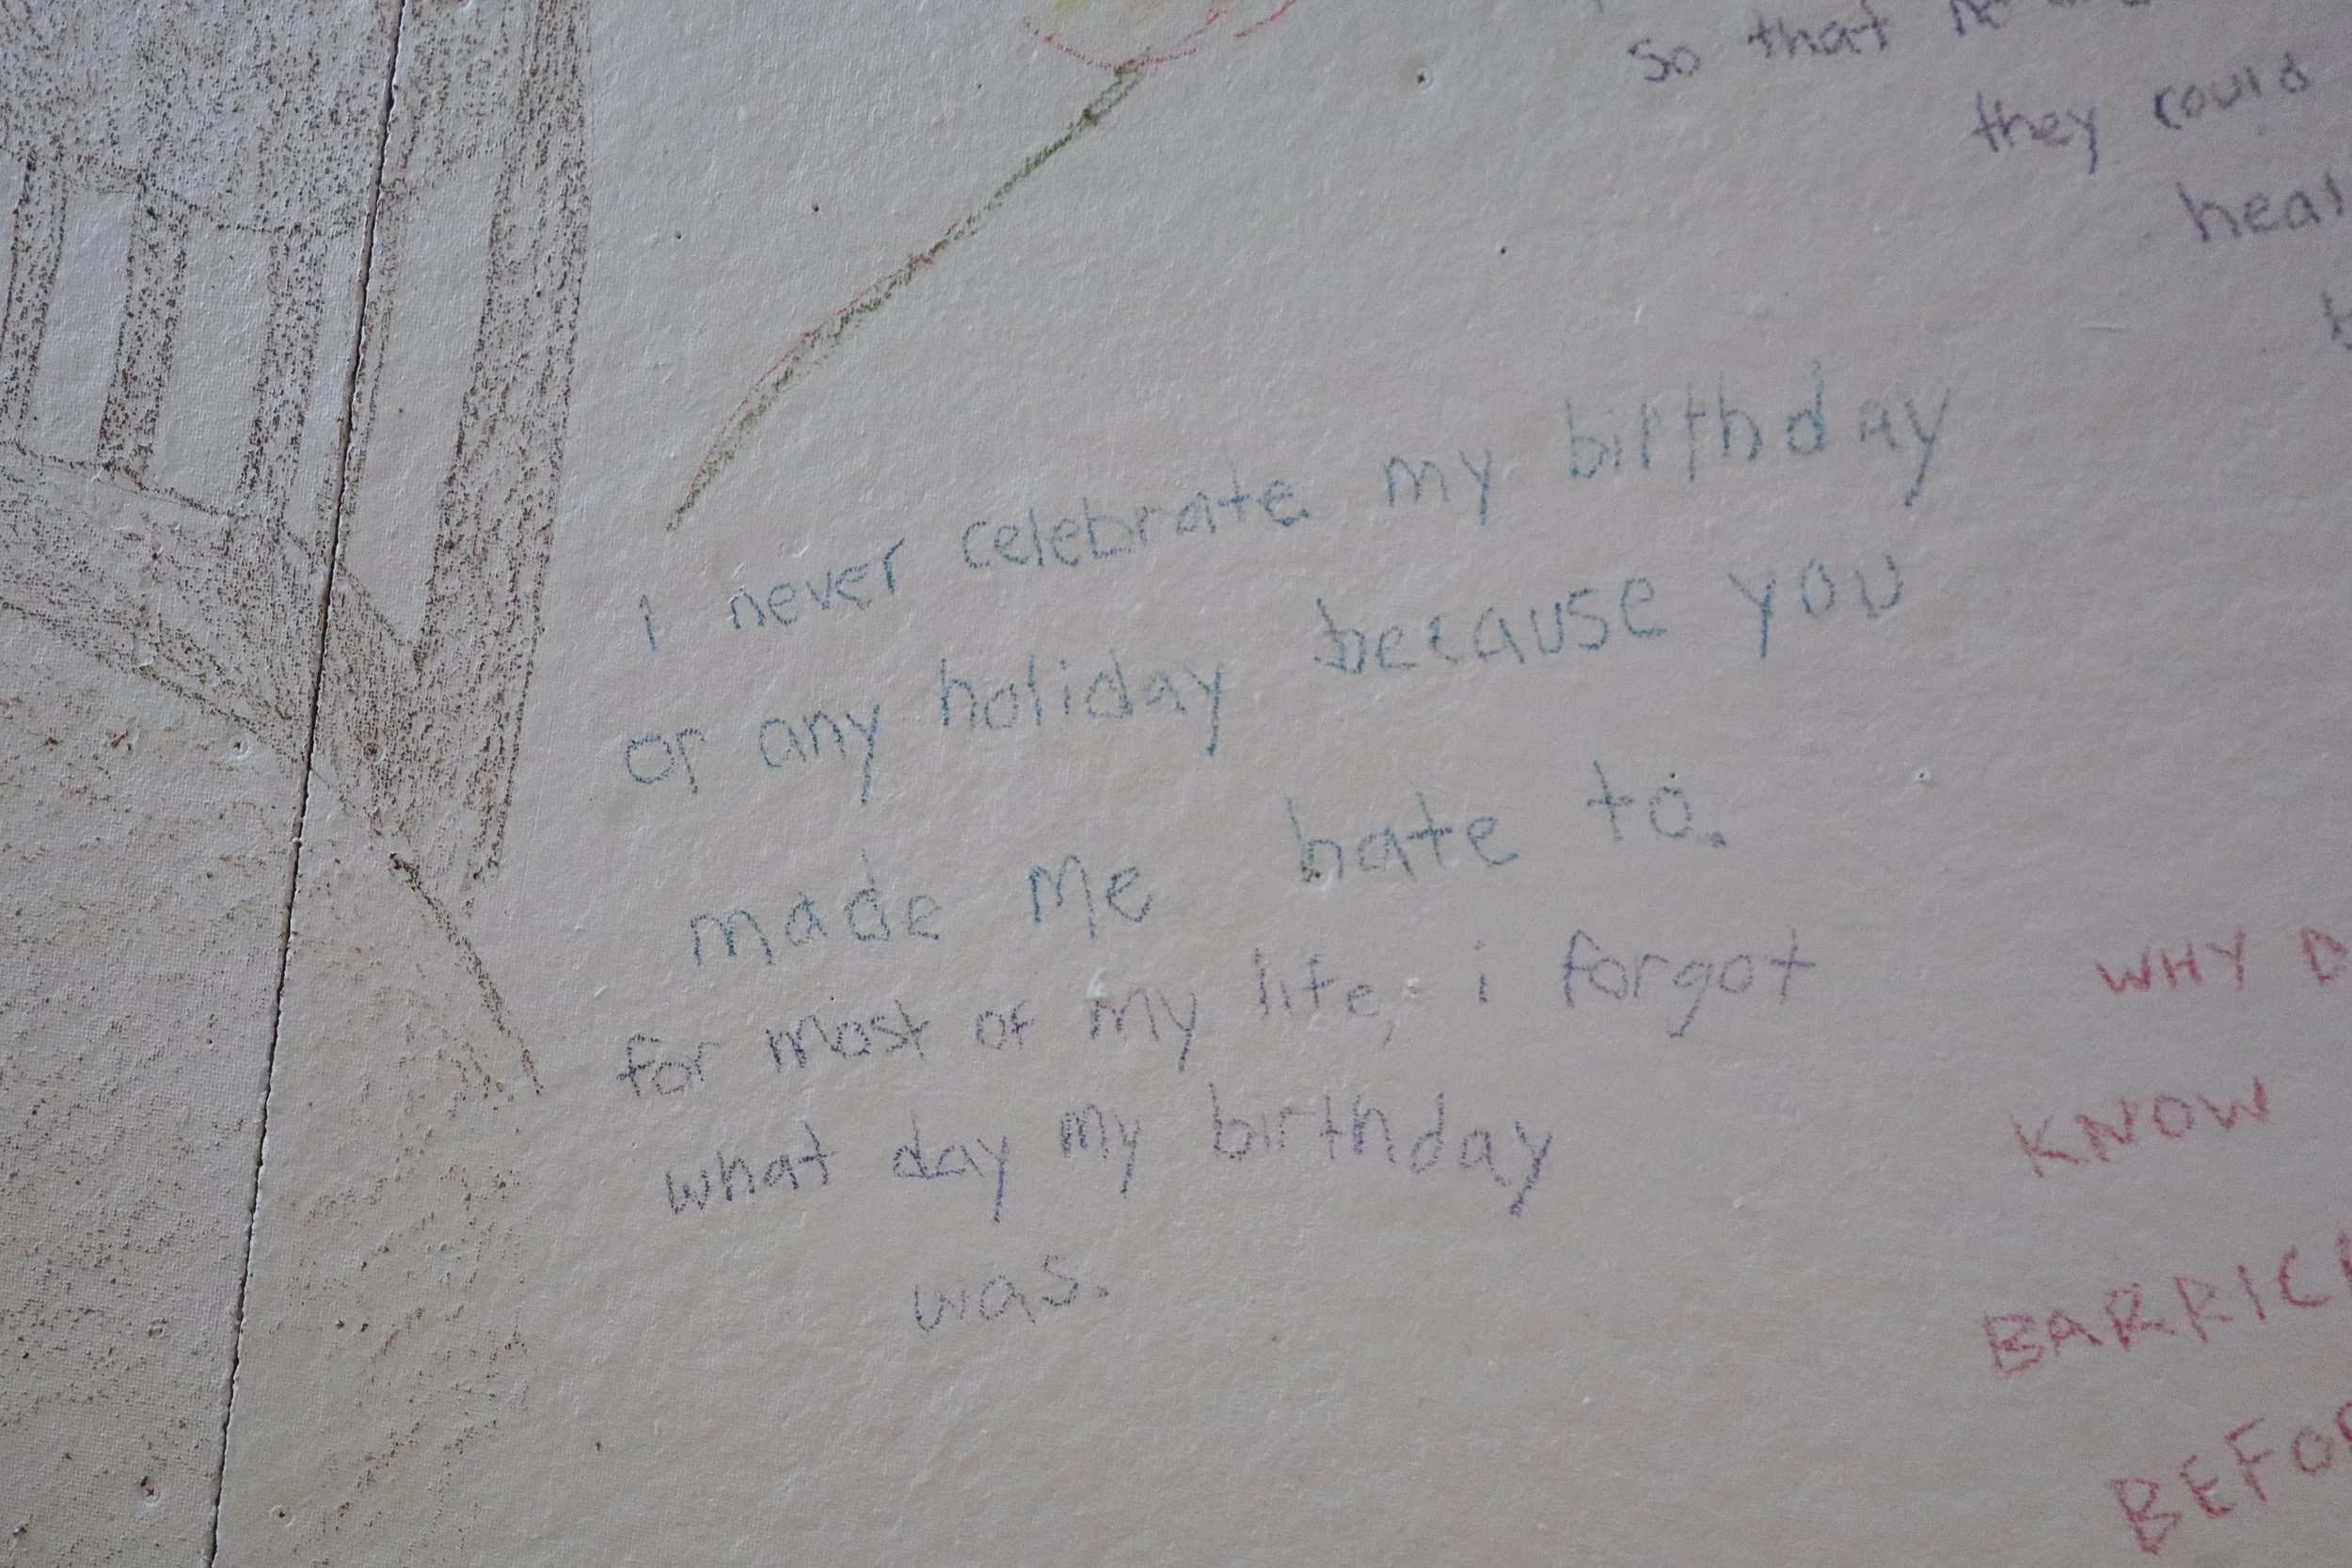 so that
they could
heal
i never celebrate my birthday
or any holiday because you
made me hate to.
for most of my life, i forgot
what day my birthday
was.
WHY D
KNOW
BARRIC
BEFO